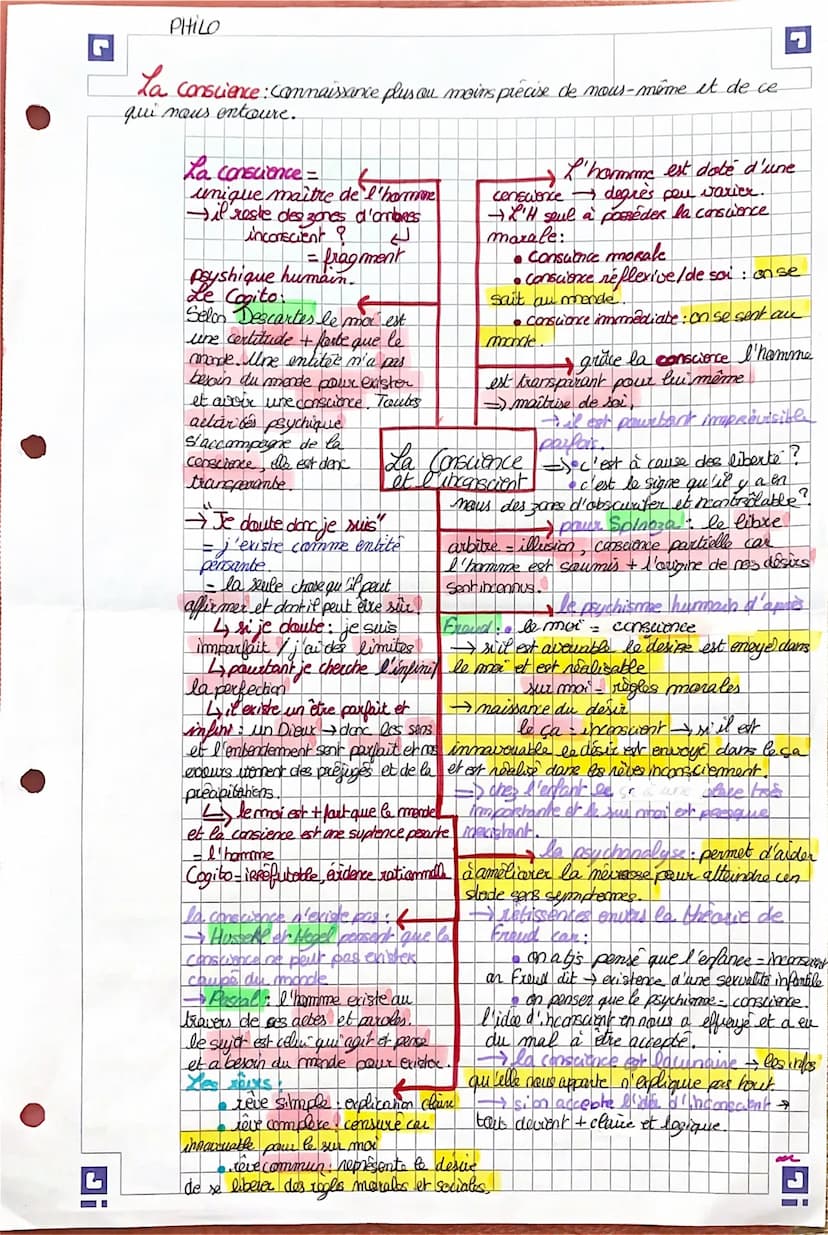 PHILO
La conscience : connaissance plus ou moins précise de nous-même et de ce
qui nous entoure.
La conscience =
unique maître de l'homme
→ il reste des zones d'ombres
inconscient ? ↵
= fragment
psyshique humain.
Le Cogito :
Selon Descartes le moi est
une certitude + forte que le
monde. Une entitée m'a pas
besoin du monde pour exister
et avoir une conscience. Toutes
activités psychique
s'accompagne de la
conscience, elle est donc
transparante.
→ "Je doute donc je suis"
= j'existe comme entité
pensante.
= la seule chose qu'il peut
affirmer et dont il peut être sûr!
↳ si je doute : je suis
imparfait / j'ai des limites
↳ pourtant je cherche l'infini/
la perfection
↳ il existe un être parfait et
infini : un Dieux → donc les sens
et l'entendement sont parfait et nos
erreurs viennent des préjugés et de la
précipitations.
↳ le moi est + fort que le monde
et la consience est une suptence pensante
= l'homme
Cogito = irréfutable, évidence rationnelle
la conscience n'existe pas :
→ Husselt et Hegel pensent que la
conscience ne peut pas exister
coupé du monde
→ Pascal : l'homme existe au
travers de ses actes et paroles.
le sujet est celui qui agit et pense
et a besoin du monde pour exister.
Les rêves :
• rêve simple : explication claire
• rêve complexe : censuré car
innavouable pour le sur moi
• rêve commun : représente le désire
de se liberer des règles morales et sociales.
L'homme est doté d'une
conscience → degrès peu varier.
→ L'H seul à posséder la conscience
morale :
• conscience morale
• conscience réflexive/de soi : on se
sait au monde.
• conscience immédiate : on se sent au
monde.
grâce la conscience l'homme
est transparant pour lui même
⇒ maîtrise de soi,
→ il est pourtant imprévisible
parfois.
⇒ • c'est à cause des liberté ?
• c'est le signe qu'il y a en
nous des zones d'obscuriter et incontrôlable ?
pour Spinoza : le libre
arbitre = illusion, conscience partielle car
l'homme est soumis + l'origine de nos désirs
sont inconnus.
le psychisme humain d'après
Freud : • le moi = conscience
→ s'il est avouable le désire est envoyé dans
le moi et est réalisable
sur moi = règles morales
→ naissance du désir
le ça = inconscient → si il est
innavouable le désir est envoyé dans le ça
et est réalisé dans les rêves inconsciement.
⇒ chez l'enfant le ça a une place très
importante et le sur moi est presque
inexistant.
la psychanalyse : permet d'aider
à améliorer la névrose pour atteindre un
stade sans symptomes.
→ rétissences envers la théorie de
Freud car :
• on a tjs pensé que l'enfance = innocence
or Freud dit → existence d'une sexualité infantile
• on penser que le psychisme = conscience.
l'idée d'inconscient en nous a effrayé et a eu
du mal à être accepté.
→ la conscience est lacunaire → les infos
qu'elle nous apporte n'explique pas tout.
→ si on accepte l'idée d'inconscient →
tout devient + claire et logique.
La Conscience
et l'inconscient